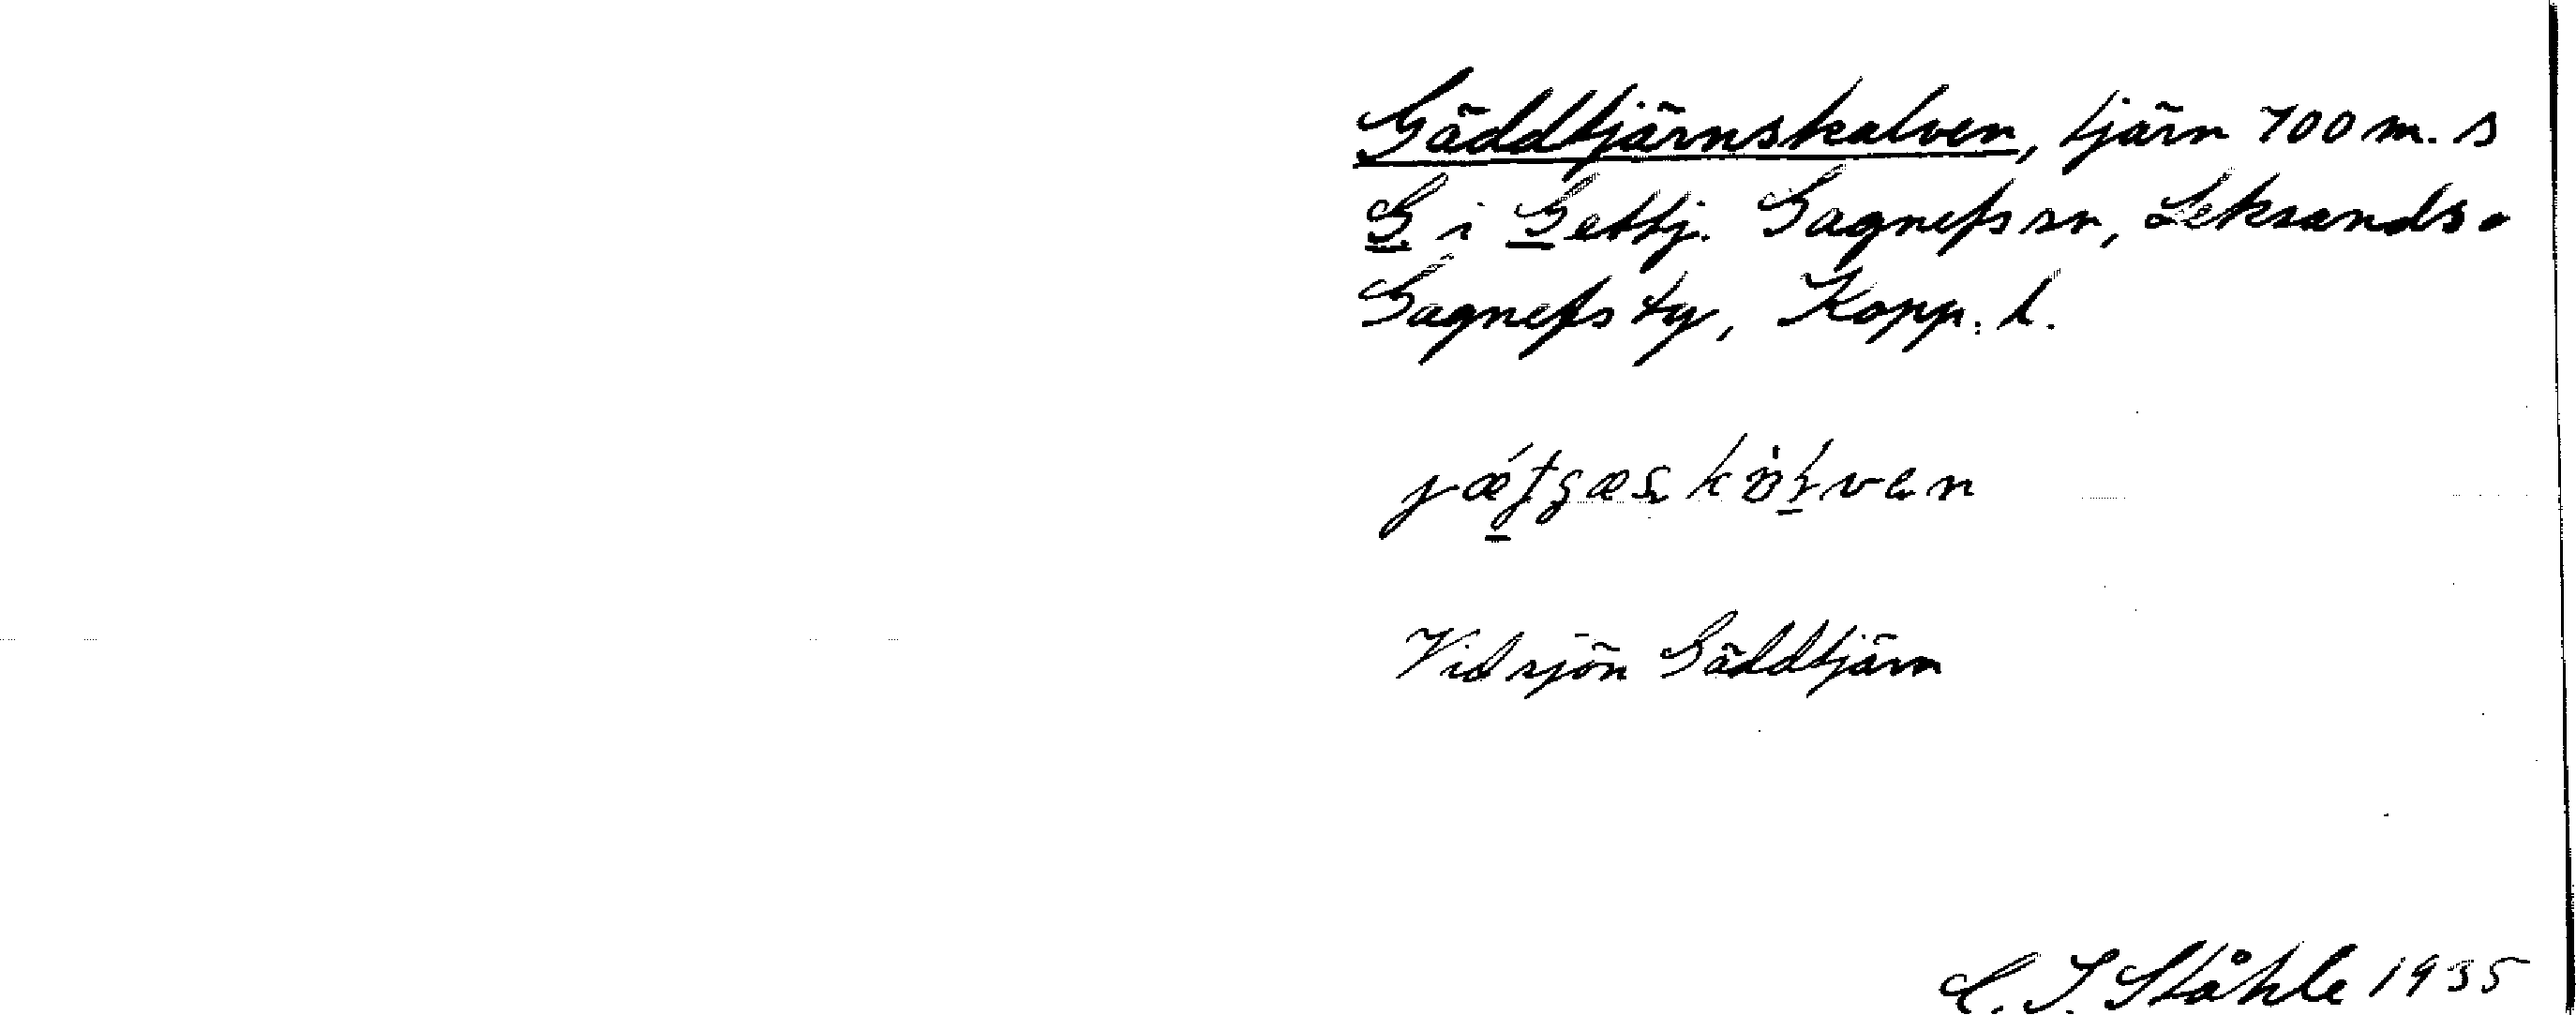 Gäddtjärnskalven, tjärn 700 m. s
G i Gettj. Gagnefs sn, Leksands o
Gagnefs tg, Kopp. l.
Vid sjön Gäddtjärn
C. I. Ståhle 1935